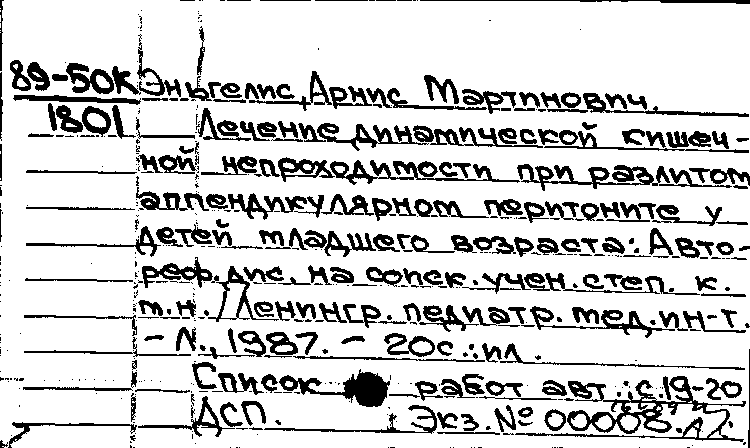 89-50К Эньгелис, Арнис Мартинович.
1801 Лечение динамической кишеч-
ной непроходимости при разлитом
аппендикулярном перитоните у
детей младшего возраста: Авто-
реф. дис. на соиск. учен. степ. к.
м.н. / Ленингр. педиатр. мед. ин-т.
- Л., 1987. - 20с.: ил.
Список работ авт.: с.19-20
ДСП. Экз. №